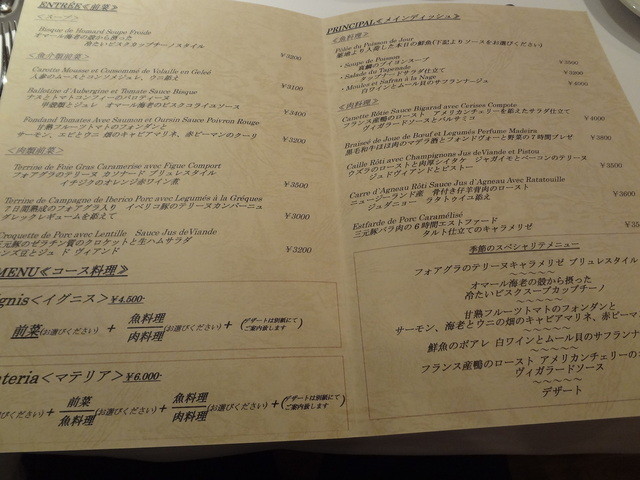 ENTRÉE＜前菜＞
＜スープ＞
Bisque de Homard Soupe Froide
オマール海老の殻から摂った
冷たいビスクカップチーノスタイル
¥3200
＜魚介類前菜＞
Carotte Mousse et Consommé de Volaille en Geleé
人参のムースとコンソメジュレ、ウニ添え
¥3100
Balletine d'Aubergine et Tomate Sauce Bisque
ナスとトマトコンフィーのバロティーヌ
甲殻類とジュレ オマール海老のビスクコライユソース
¥3400
Fondand Tomates Avec Saumon et Oursin Sauce Poivron Rouge
甘熟フルーツトマトのフォンダンと
サーモン、エビとウニ 畑のキャビアマリネ、赤ピーマンのクーリ
¥3200
＜肉類前菜＞
Terrine de Foie Gras Caramerise avec Figue Comport
フォアグラのテリーヌ カソナード ブリュレスタイル
イチジクのオレンジ赤ワイン煮
¥3500
Terrine de Campagne de Iberico Porc avec Legumés á la Gréques
７日間熟成のフォアグラ入り イベリコ豚のテリーヌカンパーニュ
グレックレギュームを添えて
¥3000
Croquette de Porc avec Lentille Sauce Jus deViande
三元豚のゼラチン質のクロケットと生ハムサラダ
ンズ豆とジュ ド ヴィアンド
¥3200
MENU≪コース料理≫
gnis＜イグニス＞¥4.500-
前菜(お選びください) + 魚料理
肉料理 (お選びください) + (デザートは別紙にて
ご案内致します)
ateria＜マテリア＞¥6.000-
ください) + 前菜
魚料理 (お選びください) + 魚料理
肉料理 (お選びください) + (デザートは別紙にて
ご案内致します)
PRINCIPAL＜メインディッシュ＞
＜魚料理＞
Pôêle du Poisson de Jour
築地より入荷した本日の鮮魚(下記よりソースをお選びください)
・Soupe de Poisson
真鯛のブイヤンスープ
¥3500
・Salade du Tapenade
タップナードサラダ仕立て
¥3200
・Moules et Safran á la Nage
白ワインとムール貝のサフランナージュ
¥6000
＜肉料理＞
Canette Rôtie Sauce Bigarad avec Cerises Compote
フランス産鴨のロースト アメリカンチェリーを添えたサラダ仕立て
ヴィガラードソースとバルサミコ
¥4000
Braised de Joue de Bœuf et Legumés Perfume Madeira
黒毛和牛ほほ肉のマデラ酒とフォンドヴォーと野菜の７時間ブレゼ
¥3800
Caille Rôti avec Champignons Jus de Viande et Pistou
ウズラのローストと肉厚シイタケ ジャガイモとベーコンのテリーヌ
ジュドヴィアンドとピストー
¥3500
Carre d'Agneau Rôti Sauce Jus d'Agneau Avec Ratatouille
ニュージーランド産 骨付き仔羊背肉のロースト
ジュダニョー ラタトゥイユ添え
¥3600
Estfarde de Porc Caramélisé
三元豚バラ肉の６時間エストファード
タルト仕立てのキャラメリゼ
¥35
季節のスペシャリテメニュー
フォアグラのテリーヌキャラメリゼ ブリュレスタイル
オマール海老の殻から摂った
冷たいビスクスープカップチーノ
甘熟フルーツトマトのフォンダンと
サーモン、海老とウニの畑のキャビアマリネ、赤ピーマ
鮮魚のポアレ 白ワインとムール貝のサフランナ
フランス産鴨のロースト アメリカンチェリーの
ヴィガラードソース
デザート